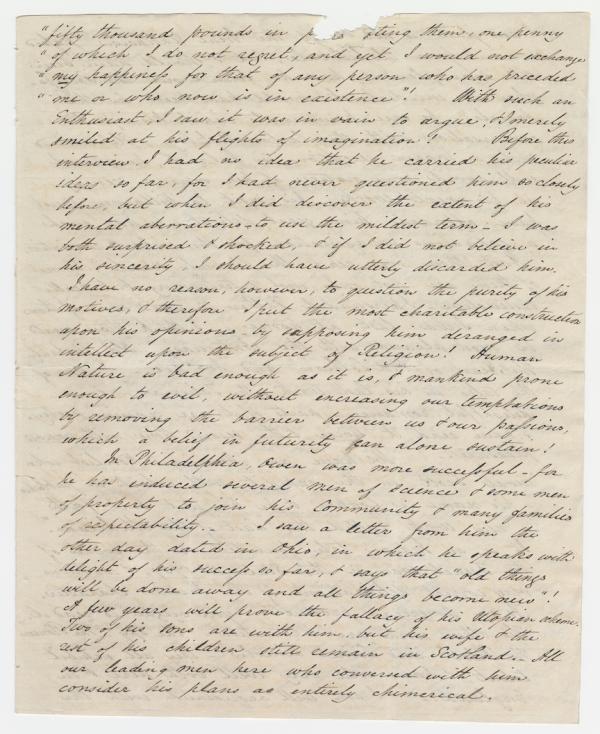 "fifty thousand pounds in p     ting them, one penny
"of which I do not regret, and yet I would not exchange
"my happiness for that of any person who has preceded
"me or who now is in existence"! With such an
Enthusiast, I saw it was in vain to argue, I merely
smiled at his flights of imagination! Before this
interview I had no idea that he carried his peculiar
ideas so far, for I had never questioned him so closely
before, but when I did discover the extent of his
mental aberrations - to use the mildest term - I was
both surprised & shocked, & if I did not believe in
his sincerity, I should have utterly discarded him.
I have no reason, however, to question the purity of his
motives, & therefore I put the most charitable construction
upon his opinions - by supposing him deranged in
intellect upon the subject of Religion! Human
Nature is bad enough as it is, & mankind prone
enough to evil, without encreasing our temptations
by removing the barrier between us & our passions,
which a belief in futurity can alone sustain!
In Philadelphia, Owen was more successful - for
he has induced several men of science & some men
of property to join his Community & many families
of respectability. - I saw a letter from him the
other day dated in Ohio, in which he speaks with
delight of his success so far, & says that "old things
will be done away and all things become new"!
A few years will prove the fallacy of his Utopian scheme.
Two of his sons are with him, but his wife & the
rest of his children still remain in Scotland. - All
our leading men here who conversed with him
consider his plans as entirely chimerical.